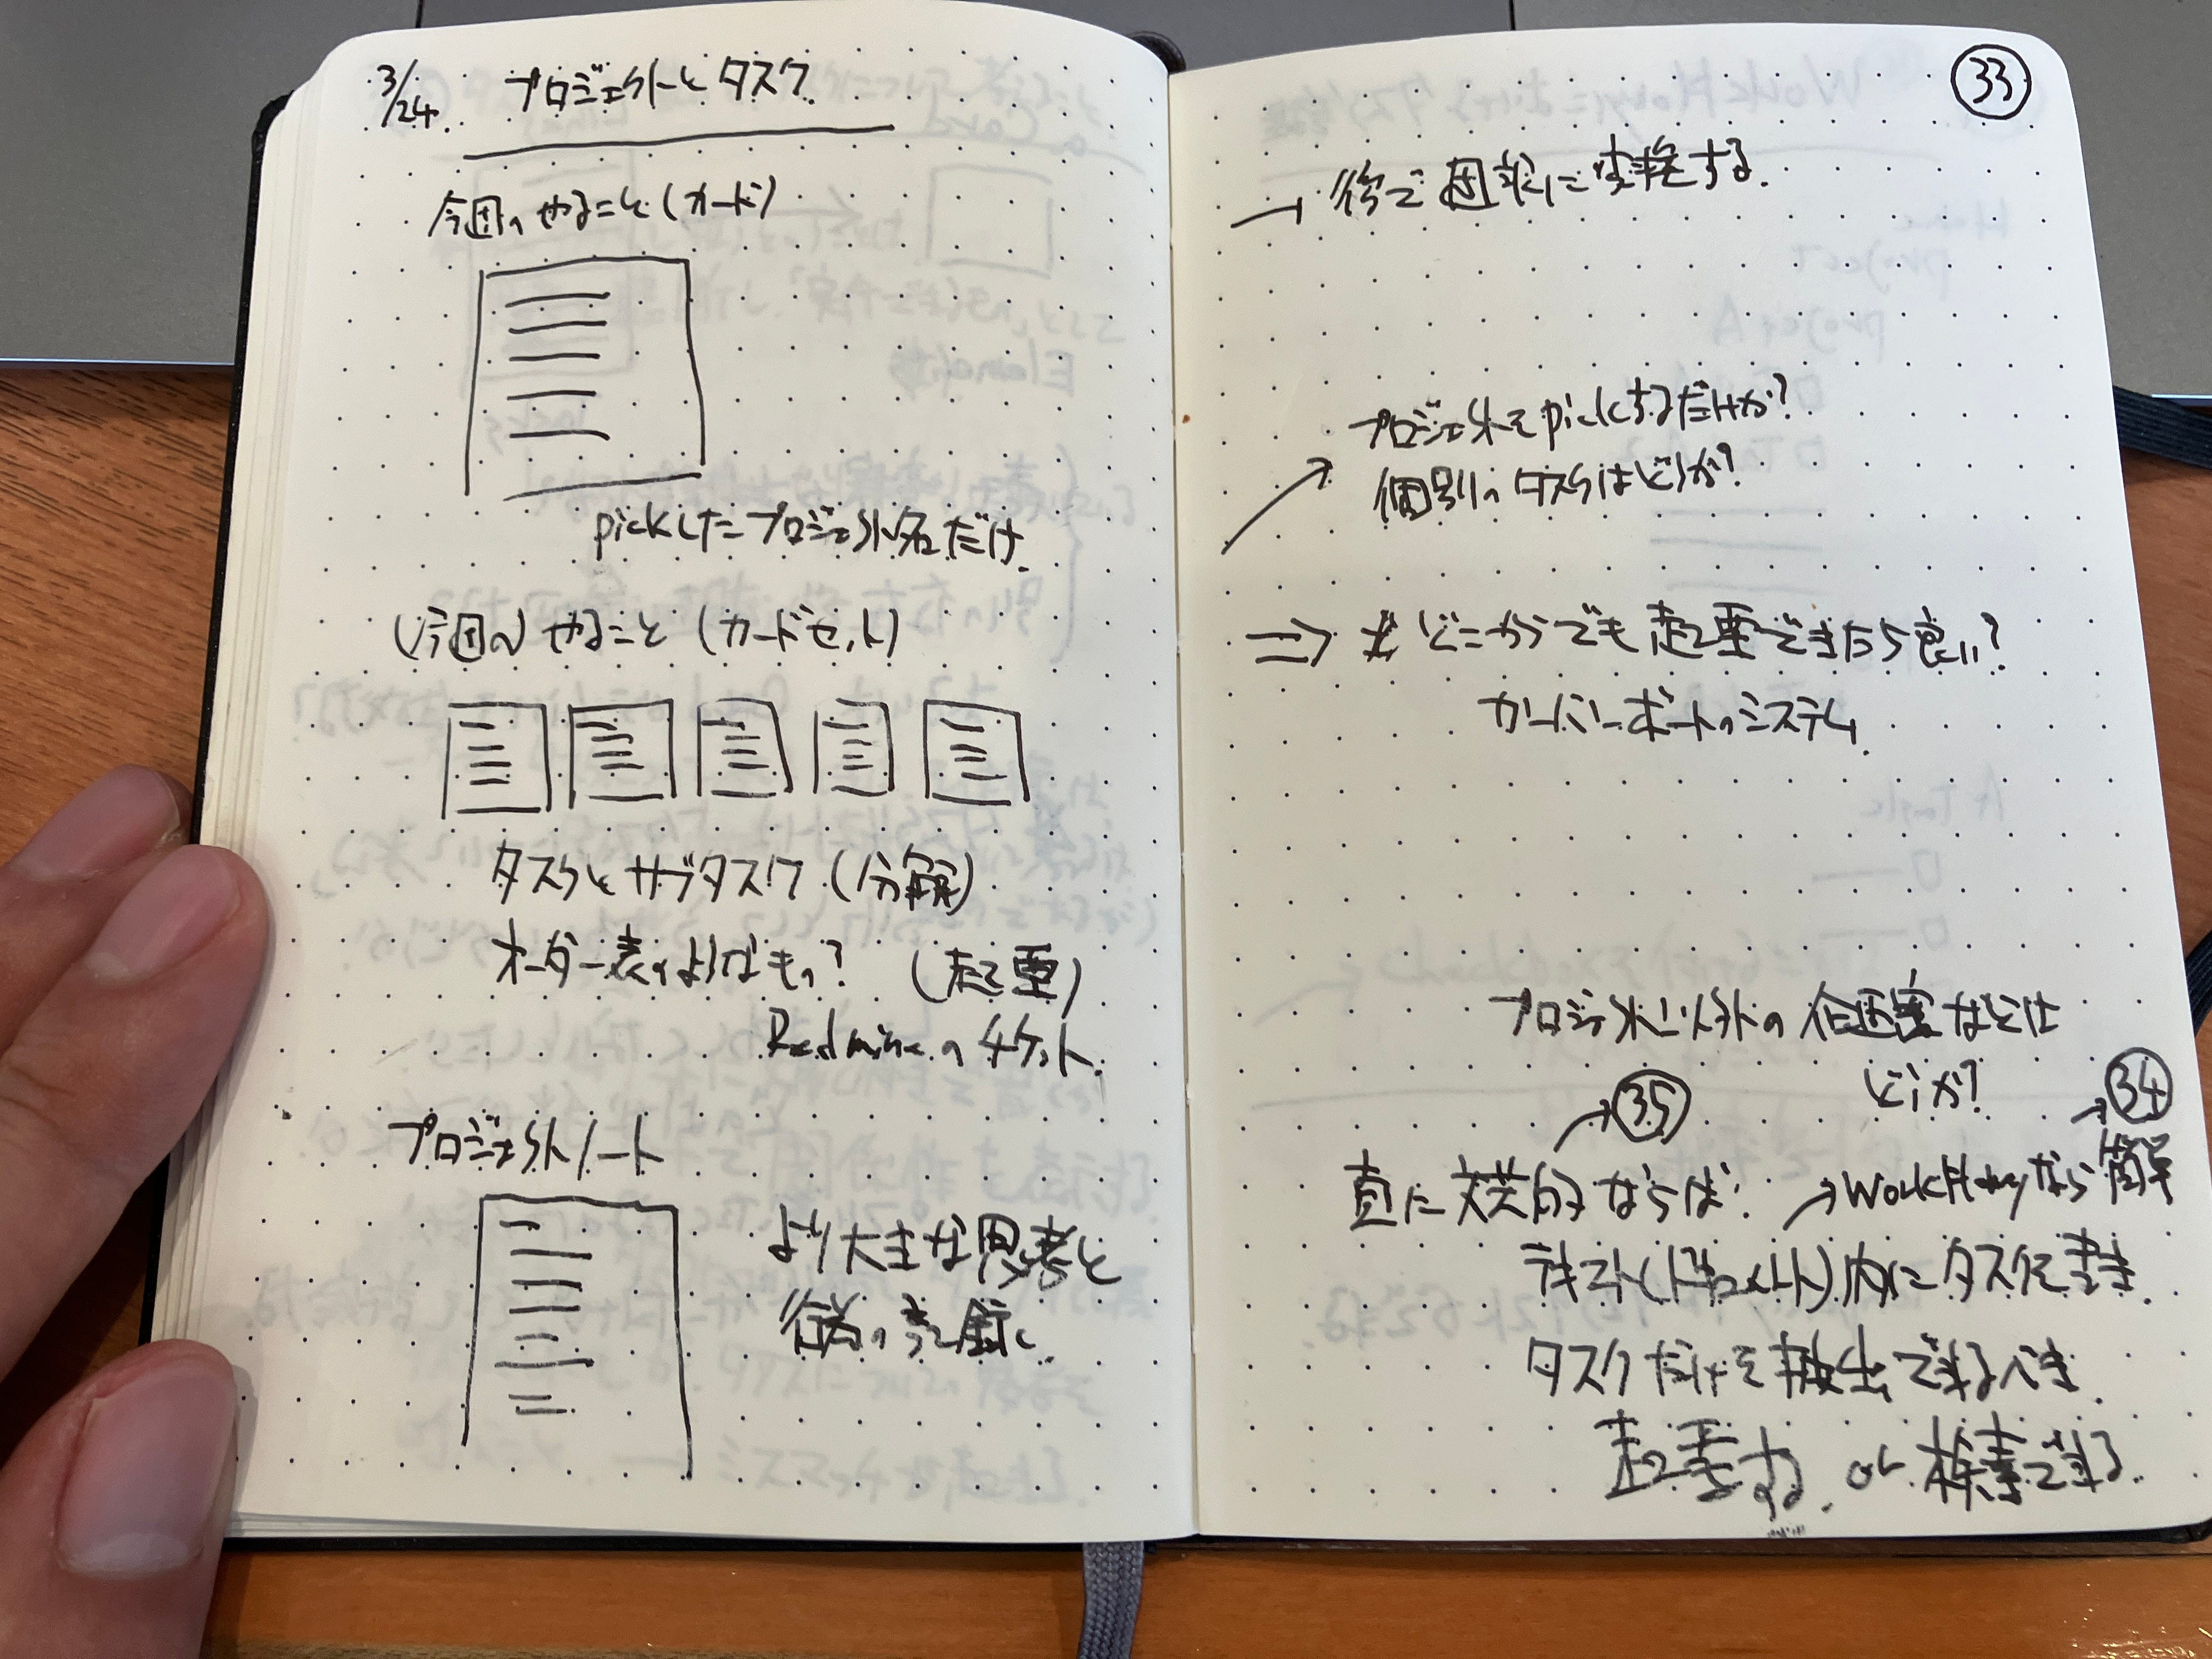 3/24. プロジェクトとタスク
今週のやること(カード)
pickしたプロジェクト名だけ.
(今週の) やること (カードセット)
タスクとサブタスク (分解)
オーダー表のようなもの? (起票)
Redmineのチケット.
プロジェクトノート
より大きな思考と
行為の記録.
33
→ 後で週報に変換する.
プロジェクトをpickするだけか?
個別のタスクはどうか?
⇒ どこからでも起票できたら良い?
カーバーボートのシステム.
プロジェクト以外の企画案などは
どうか?
→ 34
→ 35
真に文芸的ならば: → WorkFlowyなら簡単
テキスト(ドキュメント)内にタスクを書き.
タスクだけを抽出できるべき.
起票する. or 検索できる.